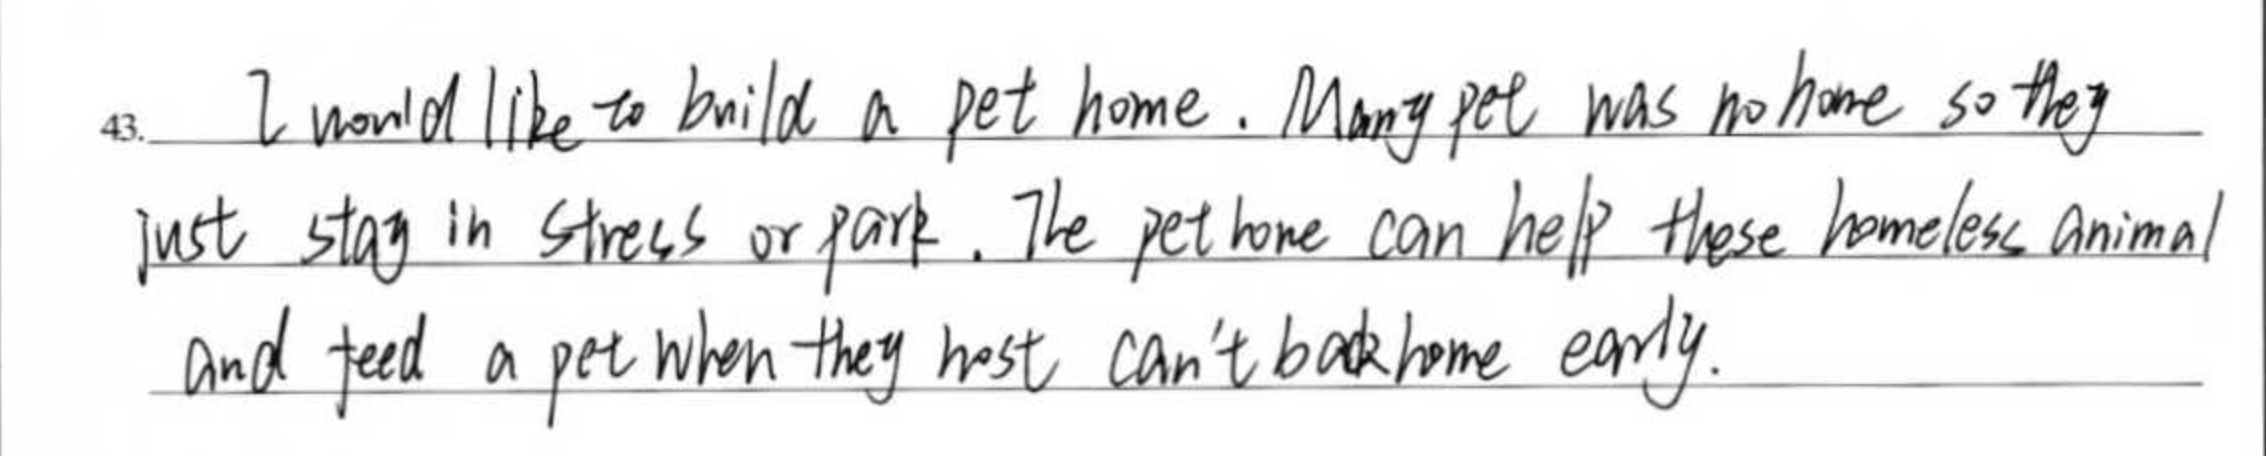 43. I would like to build a pet home. Many pet was no home so they
just stay in stress or park. The pet home can help these homeless animal
and feed a pet when they host can't back home early.